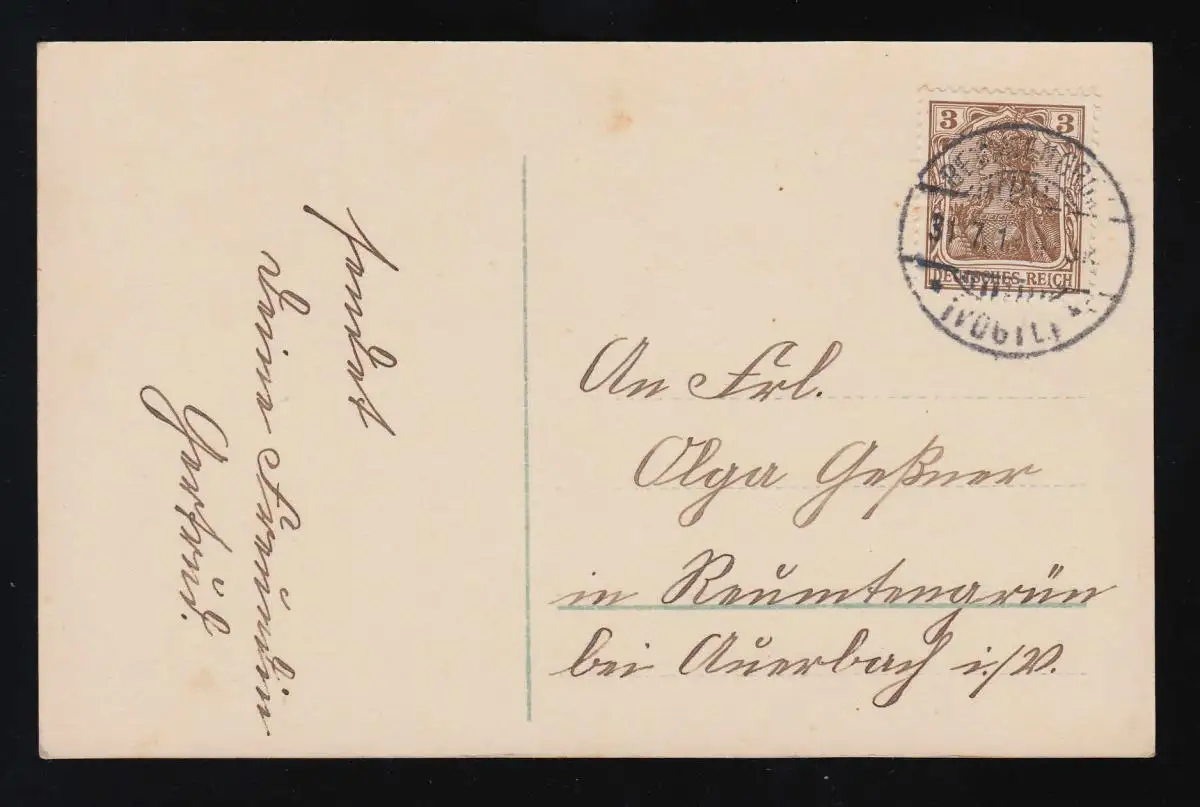 sendet
Deine Freundin
Gertrud.
3 3
DEUTSCHES REICH
31 7 1
(VOGTL)
An Frl.
Olga Geßner
in Reumtengrün
bei Auerbach i./V.